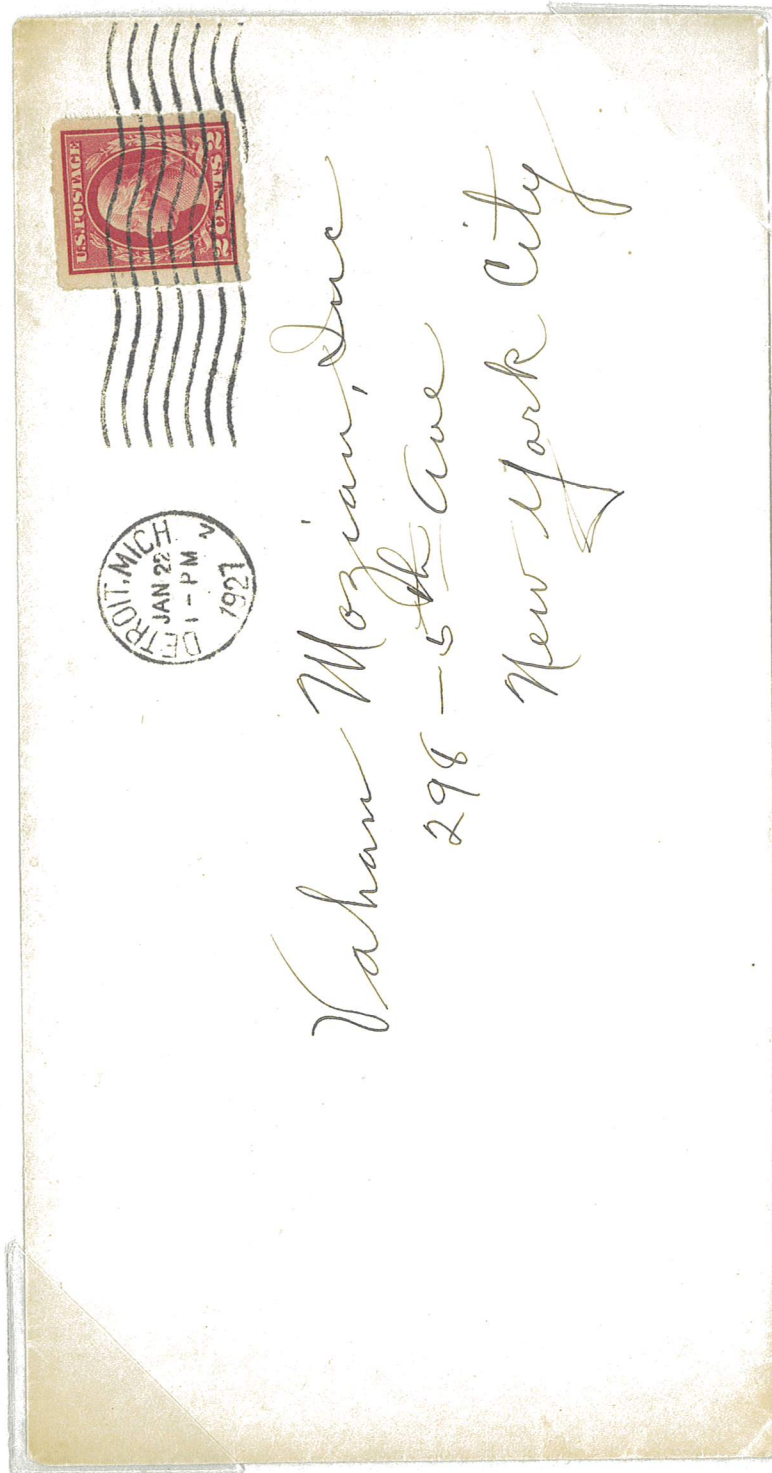 U.S. POSTAGE
2 CENTS 2
DETROIT, MICH
JAN 22
1 - PM
1921
Vahan Mozian, Inc
298 - 5th Ave
New York City